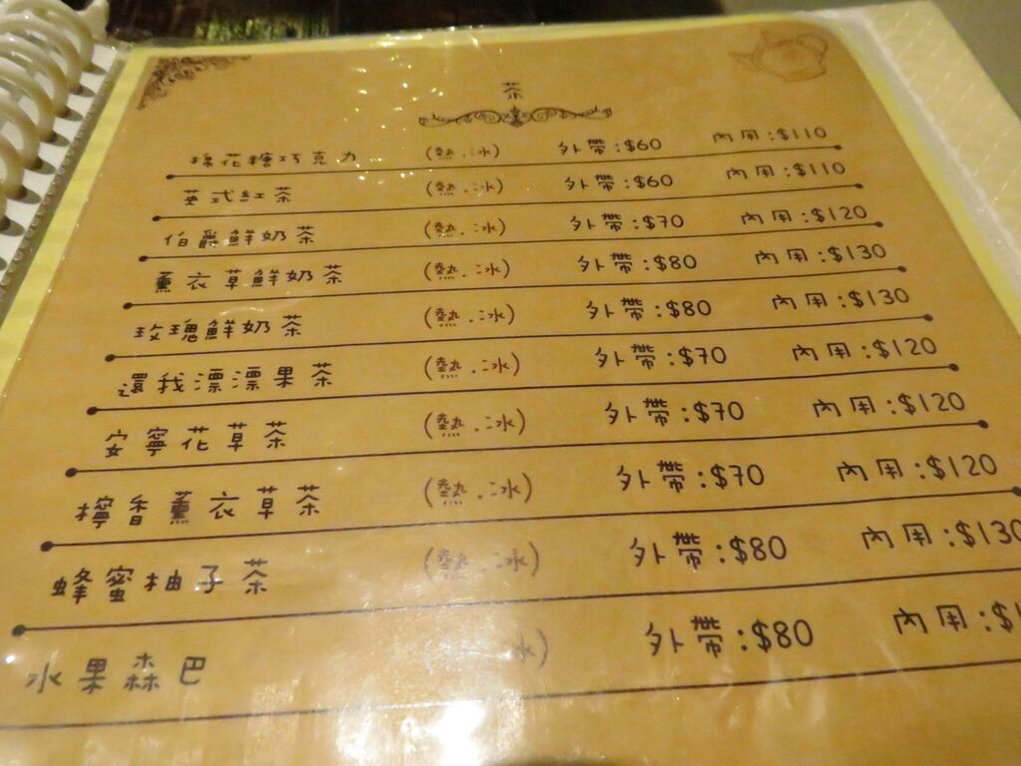 茶
棉花糖巧克力 (熱.冰) 外帶:$60 內用:$110
英式紅茶 (熱.冰) 外帶:$60 內用:$110
伯爵鮮奶茶 (熱.冰) 外帶:$70 內用:$120
薰衣草鮮奶茶 (熱.冰) 外帶:$80 內用:$130
玫瑰鮮奶茶 (熱.冰) 外帶:$80 內用:$130
還我漂漂果茶 (熱.冰) 外帶:$70 內用:$120
安寧花草茶 (熱.冰) 外帶:$70 內用:$120
檸香薰衣草茶 (熱.冰) 外帶:$70 內用:$120
蜂蜜柚子茶 (熱.冰) 外帶:$80 內用:$130
水果森巴 冰) 外帶:$80 內用:$1